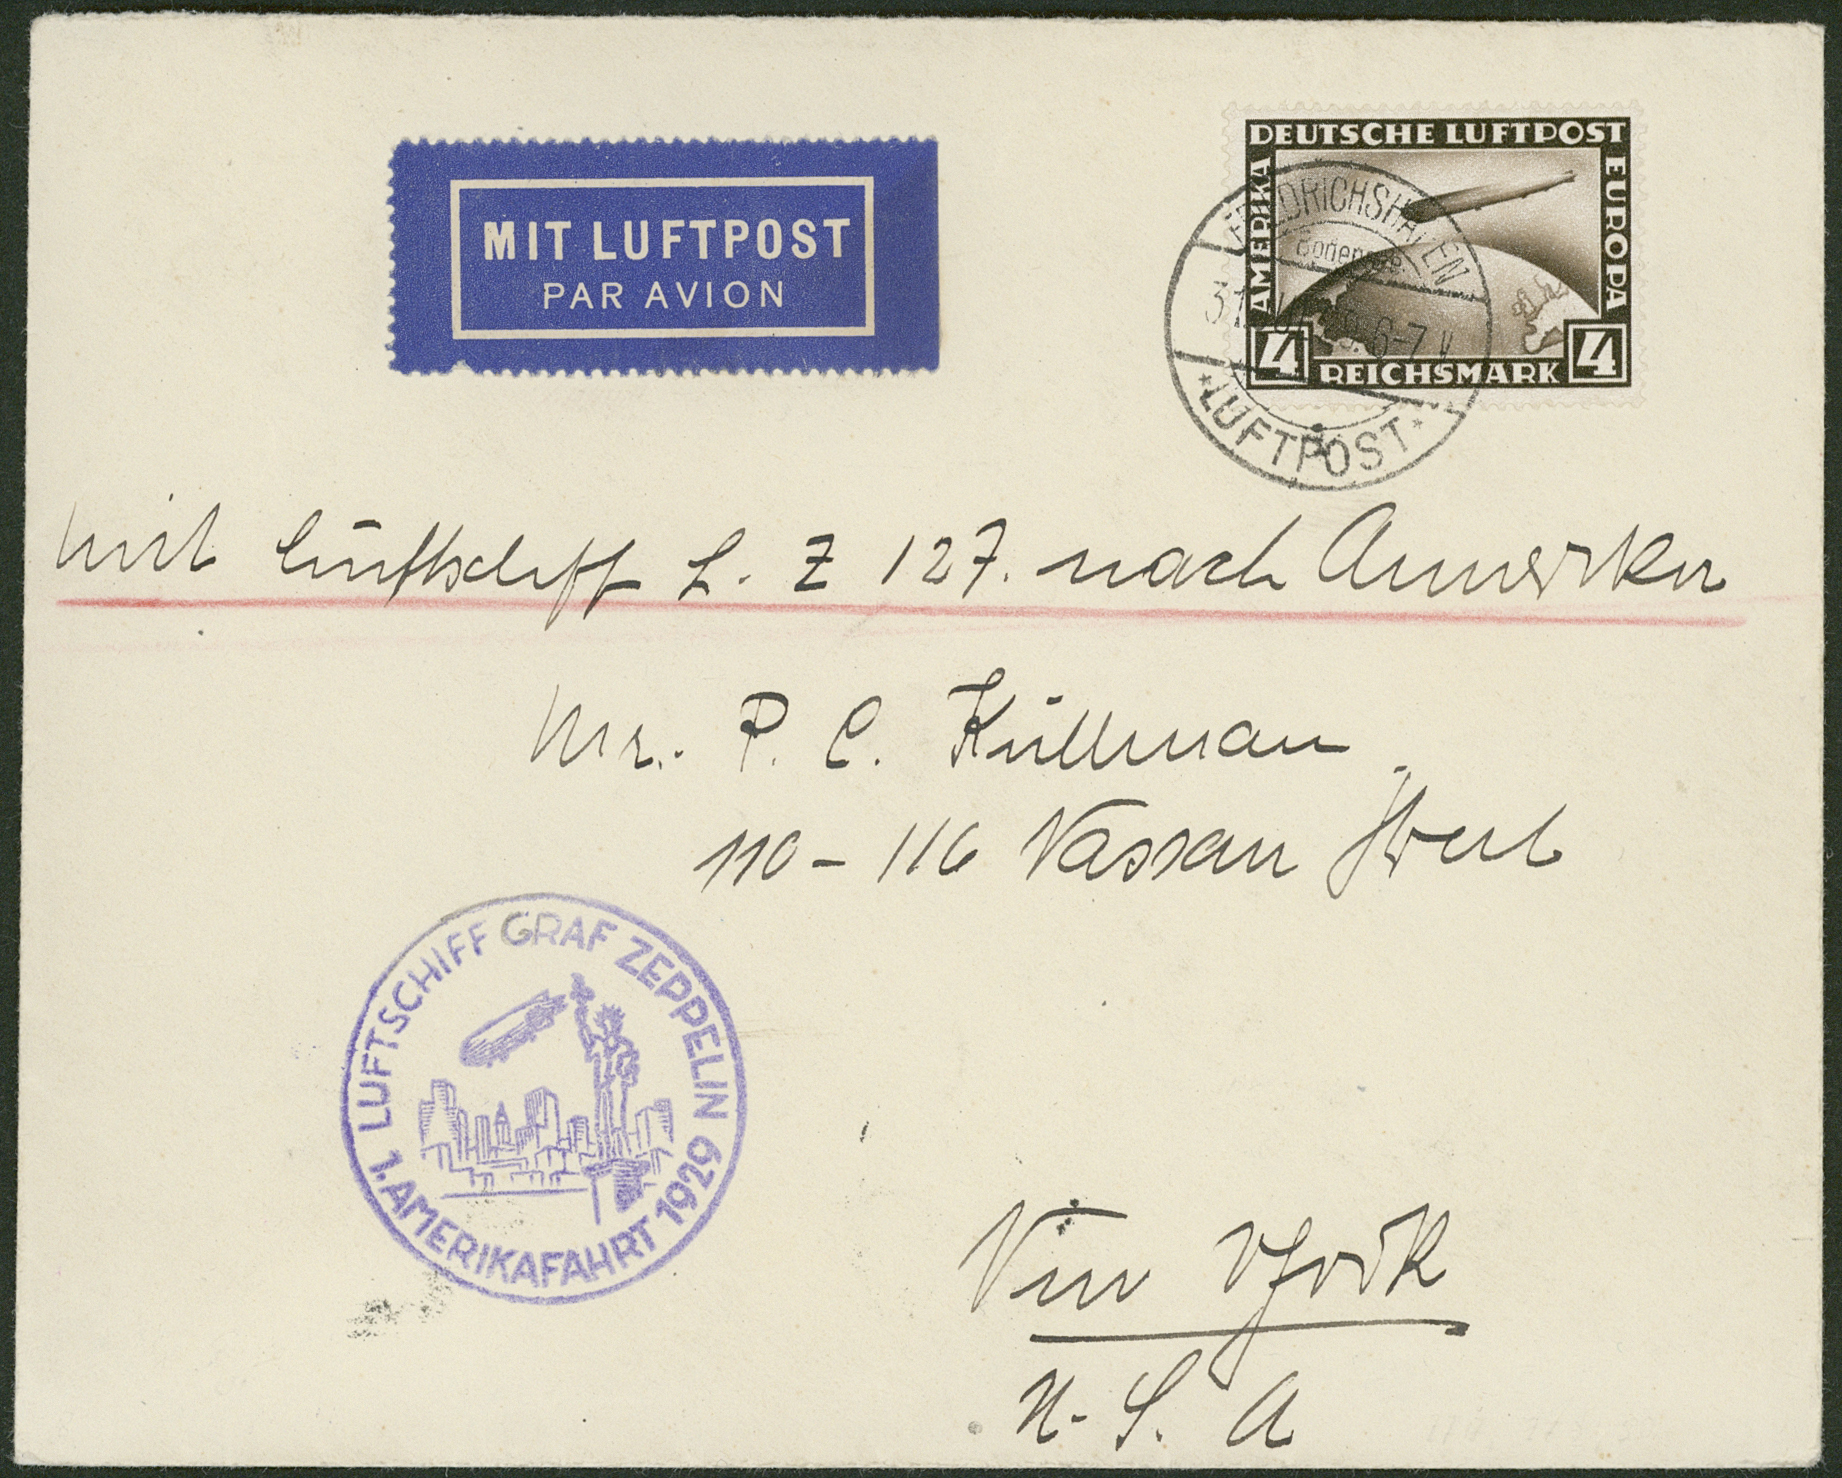 MIT LUFTPOST
PAR AVION
DEUTSCHE LUFTPOST
AMERIKA
EUROPA
4 REICHSMARK 4
FRIEDRICHSHAFEN
Bodensee
6-7 V
* LUFTPOST *
Mit Luftschiff L. Z 127. nach Amerika
Mr. P. C. Küllman
110-116 Nassau Street
LUFTSCHIFF GRAF ZEPPELIN
1. AMERIKAFAHRT 1929
New York
U. S. A